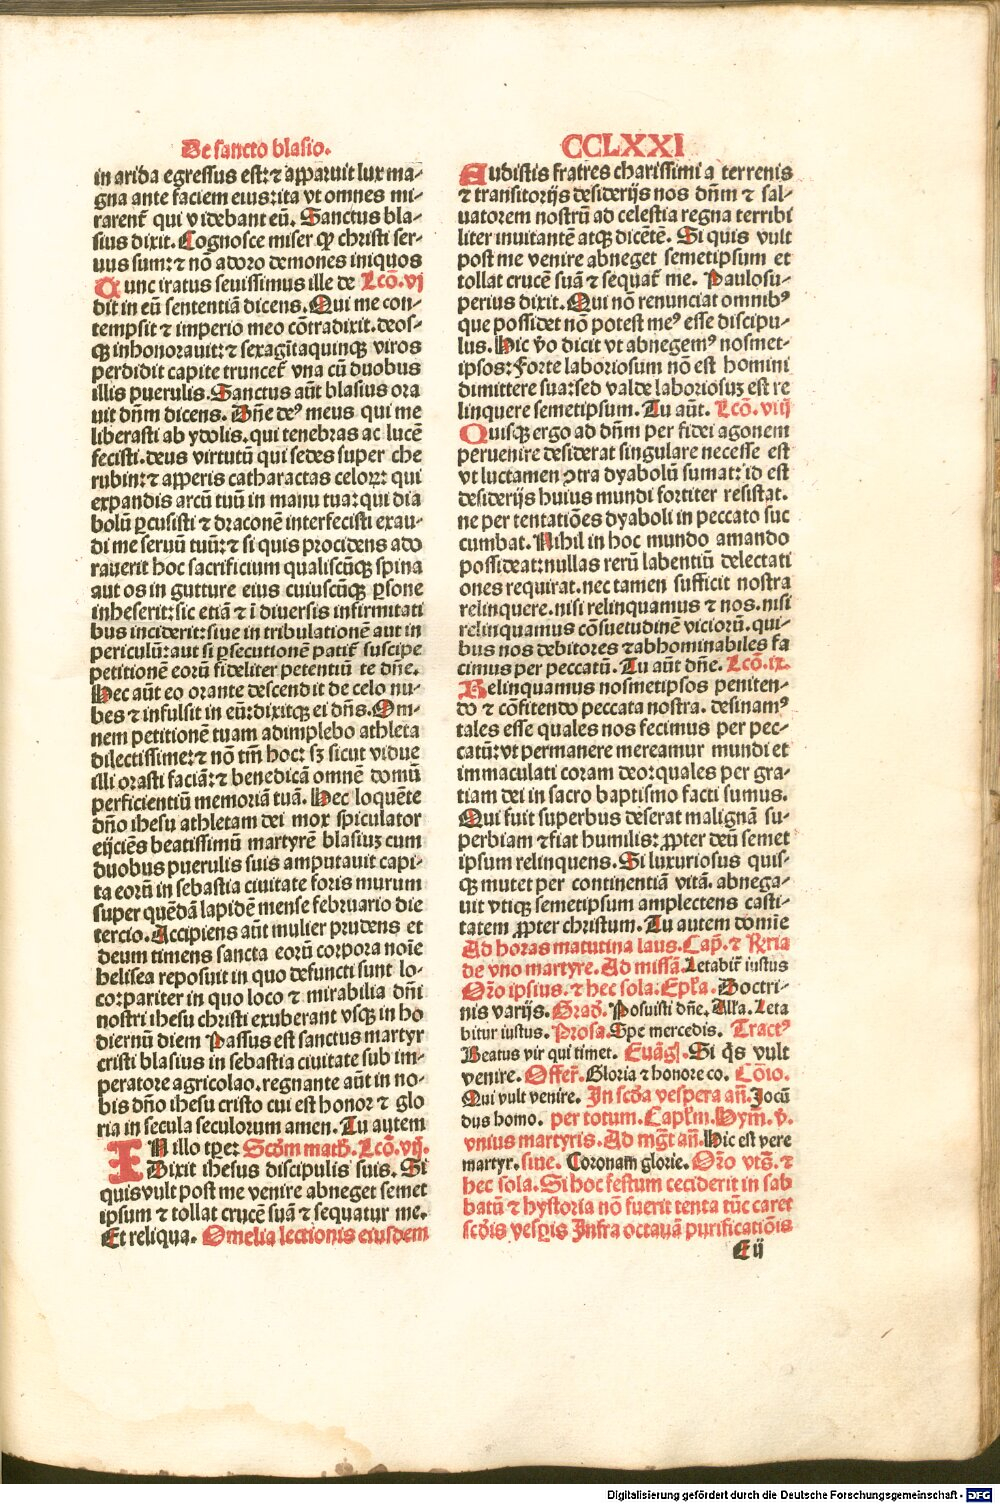 De sancto blasio.
in arida egressus est: ⁊ apparuit lux ma-
gna ante faciem eius: ita vt omnes mi-
rarent̄ qui videbant eū. Sanctus bla-
sius dixit. Cognosce miser ꝙ christi ser-
uus sum: ⁊ nō adoro demones iniquos
Tunc iratus seuissimus ille de Lcō. vj
dit in eū sententiā dicens. Qui me con-
tempsit ⁊ imperio meo cōtradixit. deos-
qꝫ inhonorauit: ⁊ sexagītaquinqꝫ viros
perdidit capite truncet̄ vna cū duobus
illis puerulis. Sanctus aūt blasius ora
uit dn̄m dicens. Dn̄e deꝰ meus qui me
liberasti ab ydolis. qui tenebras ac lucē
fecisti. deus virtutū qui sedes super che
rubin: ⁊ apperis catharactas celoꝝ: qui
expandis arcū tuū in manu tua: qui dia
bolū ꝑcusisti ⁊ draconē interfecisti exau-
di me seruū tuū: ⁊ si quis procidens ado
rauerit hoc sacrificium qualiscūqꝫ spina
aut os in gutture eius cuiuscūqꝫ ꝑsone
inheserit: sic etiā ⁊ ī diuersis infirmitati
bus inciderit: siue in tribulationē aut in
periculū: aut si ꝑsecutionē patit̄ suscipe
petitionē eorū fideliter petentiū te dn̄e.
Hec aūt eo orante descendit de celo nu-
bes ⁊ infulsit in eū: dixitqꝫ ei dn̄s. Om-
nem petitionē tuam adimplebo athleta
dilectissime: ⁊ nō tm̄ hoc: sꝫ sicut vidue
illi orasti faciā: ⁊ benedicā omnē domū
perficientiū memoriā tuā. Hec loquēte
dn̄o ihesu athletam dei mox spiculator
eijciēs beatissimū martyrē blasiuꝫ cum
duobus puerulis suis amputauit capi-
ta eorū in sebastia ciuitate foris murum
super quēdā lapidē mense februario die
tercio. Accipiens aūt mulier prudens et
deum timens sancta eorū corpora noīe
helisea reposuit in quo defuncti sunt lo-
co: pariter in quo loco ⁊ mirabilia dn̄i
nostri ihesu christi exuberant vsqꝫ in ho
diernū diem Passus est sanctus martyr
cristi blasius in sebastia ciuitate sub im-
peratore agricolao. regnante aūt in no-
bis dn̄o ihesu cristo cui est honor ⁊ glo
ria in secula seculorum amen. Tu autem
IN illo tꝑe: Scd̄m math̄. Lcō. vij.
Dixit ihesus discipulis suis. Si
quis vult post me venire abneget semet
ipsum ⁊ tollat crucē suā ⁊ sequatur me.
Et reliqua. Omelia lectionis eiusdem
CCLXXI
Audistis fratres charissimi a terrenis
⁊ transitorijs desiderijs nos dn̄m ⁊ sal-
uatorem nostrū ad celestia regna terribi
liter inuitantē atqꝫ dicētē. Si quis vult
post me venire abneget semetipsum et
tollat crucē suā ⁊ sequat̄ me. Paulosu-
perius dixit. Qui nō renunciat omnibꝰ
que possidet nō potest meꝰ esse discipu-
lus. Hic v̄o dicit vt abnegemꝰ nosmet-
ipsos: Forte laboriosum nō est homini
dimittere sua: sed valde laboriosuꝫ est re
linquere semetipsum. Tu aūt. Lcō. viij
Quisqꝫ ergo ad dn̄m per fidei agonem
peruenire desiderat singulare necesse est
vt luctamen ꝯtra dyabolū sumat: id est
desiderijs huius mundi fortiter resistat.
ne per tentatiōes dyaboli in peccato suc
cumbat. Nihil in hoc mundo amando
possideat: nullas rerū labentiū delectati
ones requirat. nec tamen sufficit nostra
relinquere. nisi relinquamus ⁊ nos. nisi
relinquamus cōsuetudinē viciorū. qui-
bus nos debitores ⁊ abhominabiles fa
cimus per peccatū. Tu aūt dn̄e. Lcō. ix.
Relinquamus nosmetipsos peniten-
do ⁊ cōfitendo peccata nostra. desinamꝰ
tales esse quales nos fecimus per pec-
catū: vt permanere mereamur mundi et
immaculati coram deo: quales per gra-
tiam dei in sacro baptismo facti sumus.
Qui fuit superbus deserat malignā su-
perbiam ⁊ fiat humilis: ꝓpter deū semet
ipsum relinquens. Si luxuriosus quis-
qꝫ mutet per continentiā vitā. abnega-
uit vtiqꝫ semetipsum amplectens casti-
tatem ꝓpter christum. Tu autem domīe
Ad horas matutina laus. Cap̄. ⁊ Rͬria
de vno martyre. Ad missā. Letabit̄ iustus
Or̄o ipsius. ⁊ hec sola. Epl̄a. Doctri-
nis varijs. Grad̄. Posuisti dn̄e. Al̄la. Leta
bitur iustus. Prosa. Spe mercedis. Tractꝰ
Beatus vir qui timet. Euāgl̄. Si q̄s vult
venire. Offer̄. Gloria ⁊ honore co. Cōio.
Qui vult venire. In scd̄a vespera an̄. Jocū
dus homo. per totum. Capl̄m. Hym̄. v̄.
vnius martyris. Ad mḡt an̄. Hic est vere
martyr. siue. Coronam̄ glorie. Or̄o vts̄. ⁊
hec sola. Si hoc festum ceciderit in sab
batū ⁊ hystoria nō fuerit tenta tūc caret
scd̄is vesꝑis Infra octauā purificatiōis
E ij
Digitalisierung gefördert durch die Deutsche Forschungsgemeinschaft - DFG